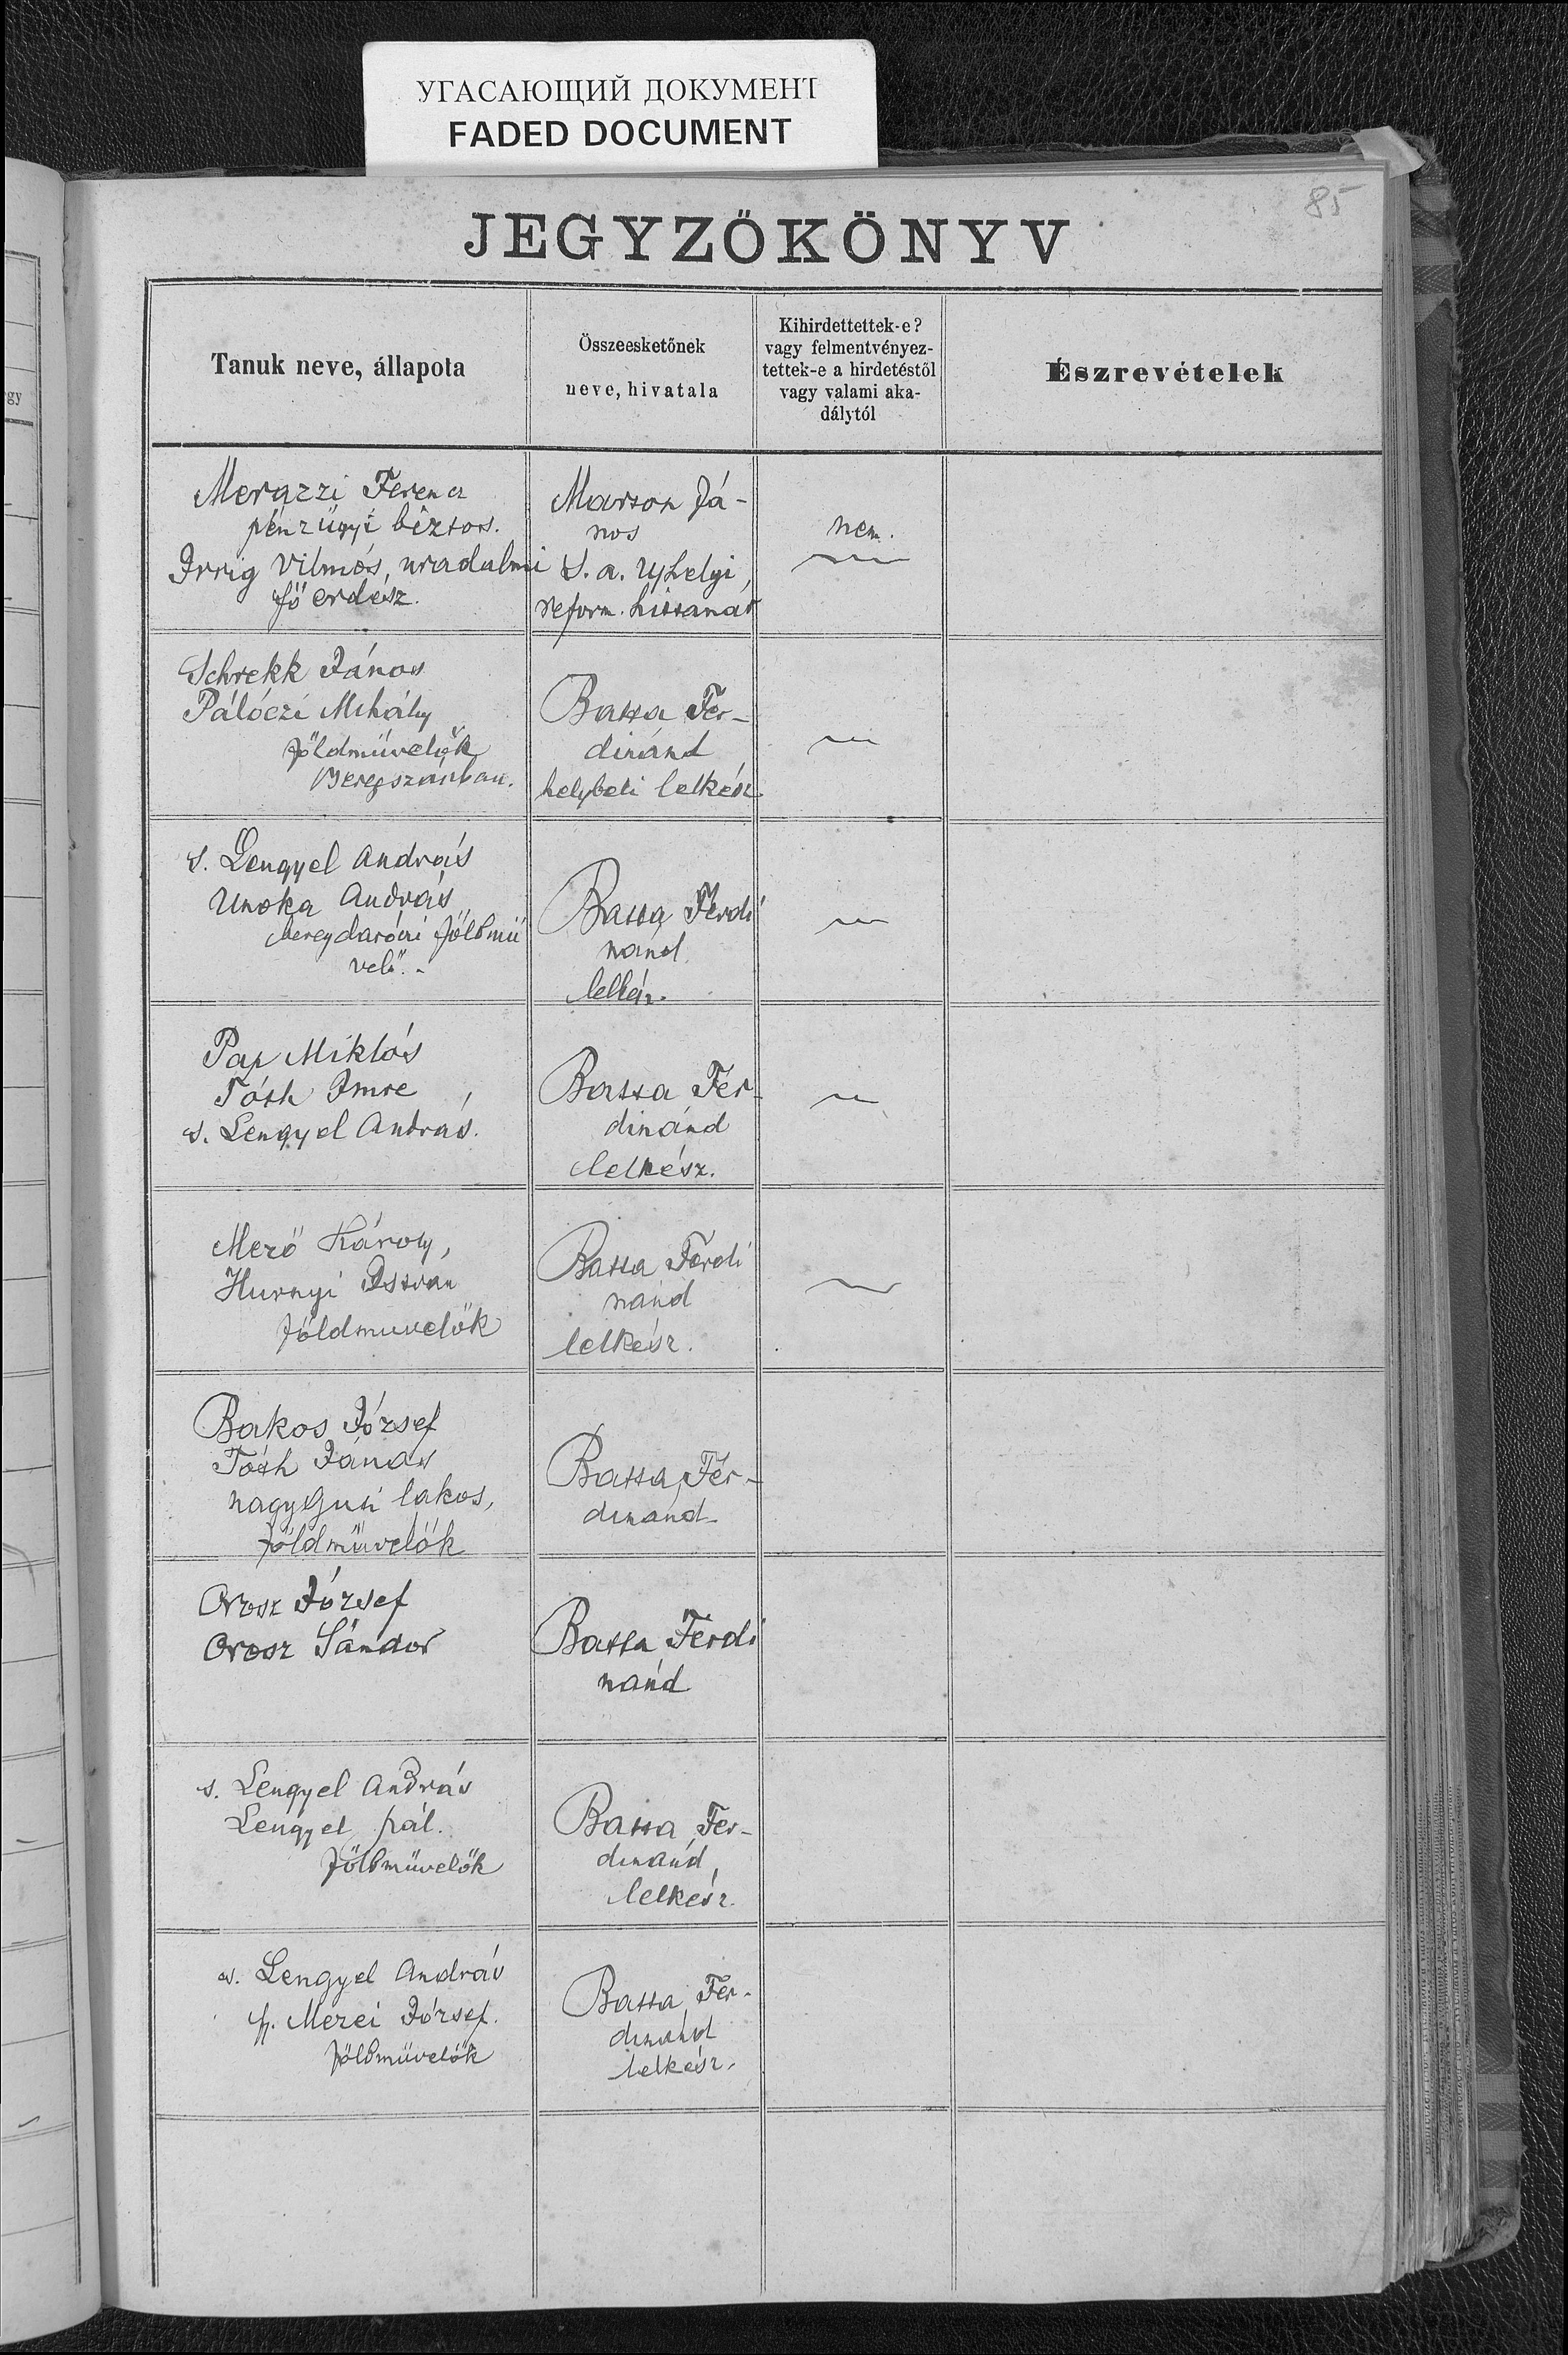 УГАСАЮЩИЙ ДОКУМЕНТ
FADED DOCUMENT
85
JEGYZŐKÖNYV
Tanuk neve, állapota
Összeesketőnek
neve, hivatala
Kihirdettettek-e?
vagy felmentvényez-
tettek-e a hirdetéstől
vagy valami aka-
dálytól
Észrevételek
Merazzi Ferencz
pénzügyi biztos.
Irrig Vilmos, uradalmi
fő erdész.
Marton Já-
nos
S. a. Ujhelyi,
reform. hittanár
nem.
Schrekk János
Pálóczi Mihály
földművelők
Beregszászban.
Bassa Fer-
dinánd
helybeli lelkész
s. Lengyel András
Unoka András
beregdaróczi földmü
velő.-
Bassa Ferdi
nánd
lelkész.
Pap Miklós
Tóth Imre,
s. Lengyel András.
Bassa Fer-
dinánd
lelkész.
Mező Károly,
Hunyi Istvan
földmuvelők
Bassa Ferdi
nánd
lelkész.
Bakos József
Tóth János
nagy guti lakos,
földművelők
Bassa Fer-
dinánd
Orosz József
Orosz Sándor
Bassa Ferdi
nánd
s. Lengyel András
Lengyel pál.
földmüvelők
Bassa Fer-
dinánd,
lelkész.
s. Lengyel András
Merei József.
földmüvelők
Bassa Fer-
dinánd
lelkész.